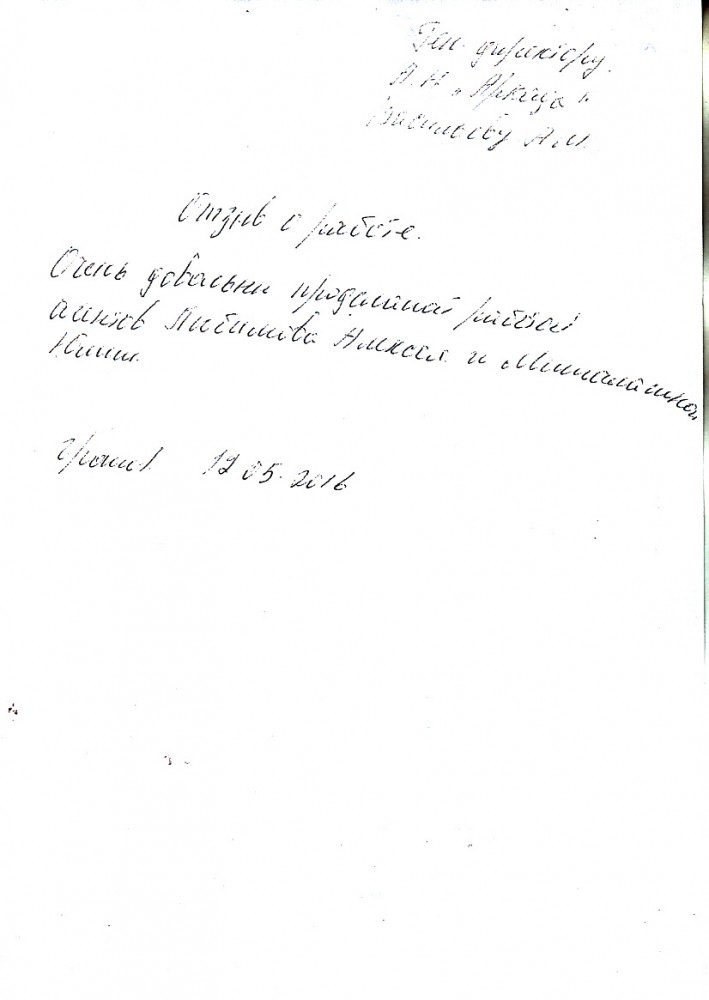 Ген. директору
А.Н. „Аркада"
Васильеву А.М.
Отзыв о работе.
Очень довольны проделанной работой
агентов Любимова Алексея и
Нины.
12 05. 2016